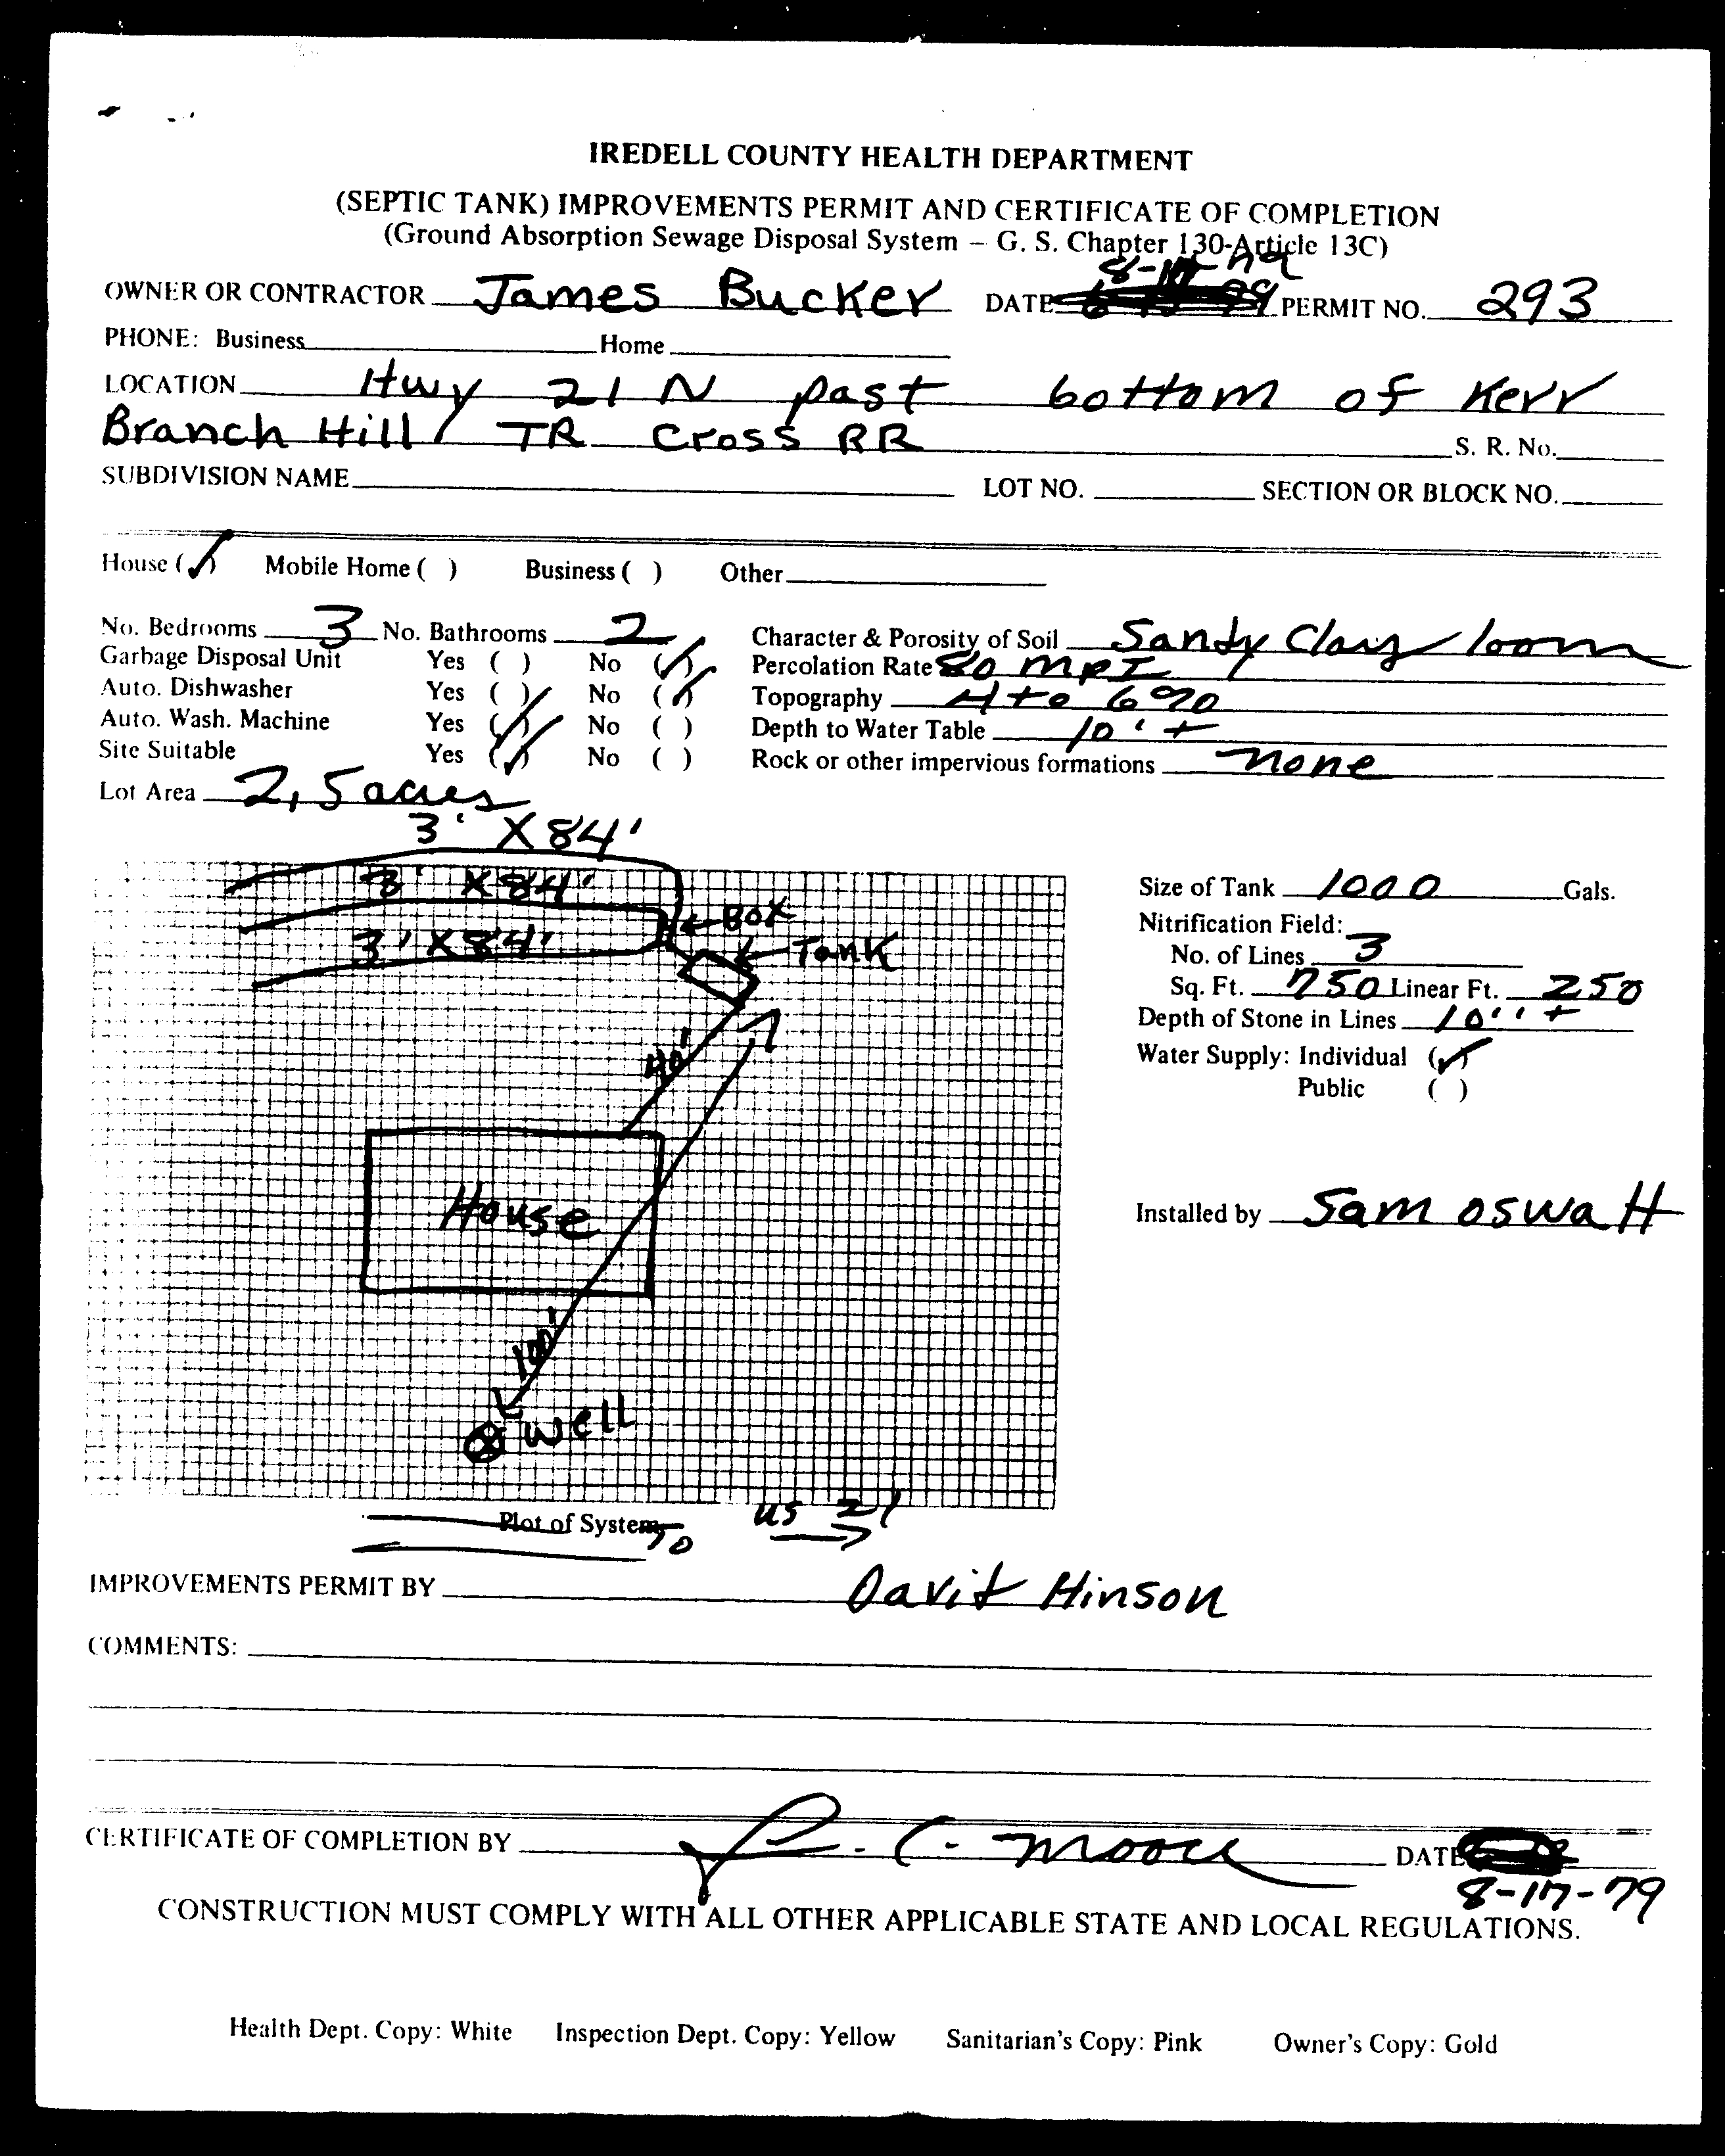 IREDELL COUNTY HEALTH DEPARTMENT
(SEPTIC TANK) IMPROVEMENTS PERMIT AND CERTIFICATE OF COMPLETION
(Ground Absorption Sewage Disposal System – G. S. Chapter 130-Article 13C)
OWNER OR CONTRACTOR James Bucker DATE PERMIT NO. 293
PHONE: Business Home
LOCATION Hwy 21 N past bottom of Kerr
Branch Hill / TR Cross RR S. R. No.
SUBDIVISION NAME LOT NO. SECTION OR BLOCK NO.
House (✓) Mobile Home ( ) Business ( ) Other
No. Bedrooms 3 No. Bathrooms 2 Character & Porosity of Soil Sandy Clay loom
Garbage Disposal Unit Yes ( ) No (✓) Percolation Rate 80 MPI
Auto. Dishwasher Yes ( ) No (✓) Topography 4 to 6%
Auto. Wash. Machine Yes (✓) No ( ) Depth to Water Table 10' +
Site Suitable Yes (✓) No ( ) Rock or other impervious formations none
Lot Area 2,5 acres
3' X 84'
3' X 84'
3' X 84'
Box
Tank
40'
House
100'
well
Size of Tank 1000 Gals.
Nitrification Field:
No. of Lines 3
Sq. Ft. 750 Linear Ft. 250
Depth of Stone in Lines 10'' +
Water Supply: Individual (✓)
Public ( )
Installed by Sam oswalt
Plot of System To US 21
IMPROVEMENTS PERMIT BY Davit Hinson
COMMENTS:
CERTIFICATE OF COMPLETION BY C. Moore DATE
8-17-79
CONSTRUCTION MUST COMPLY WITH ALL OTHER APPLICABLE STATE AND LOCAL REGULATIONS.
Health Dept. Copy: White Inspection Dept. Copy: Yellow Sanitarian's Copy: Pink Owner's Copy: Gold